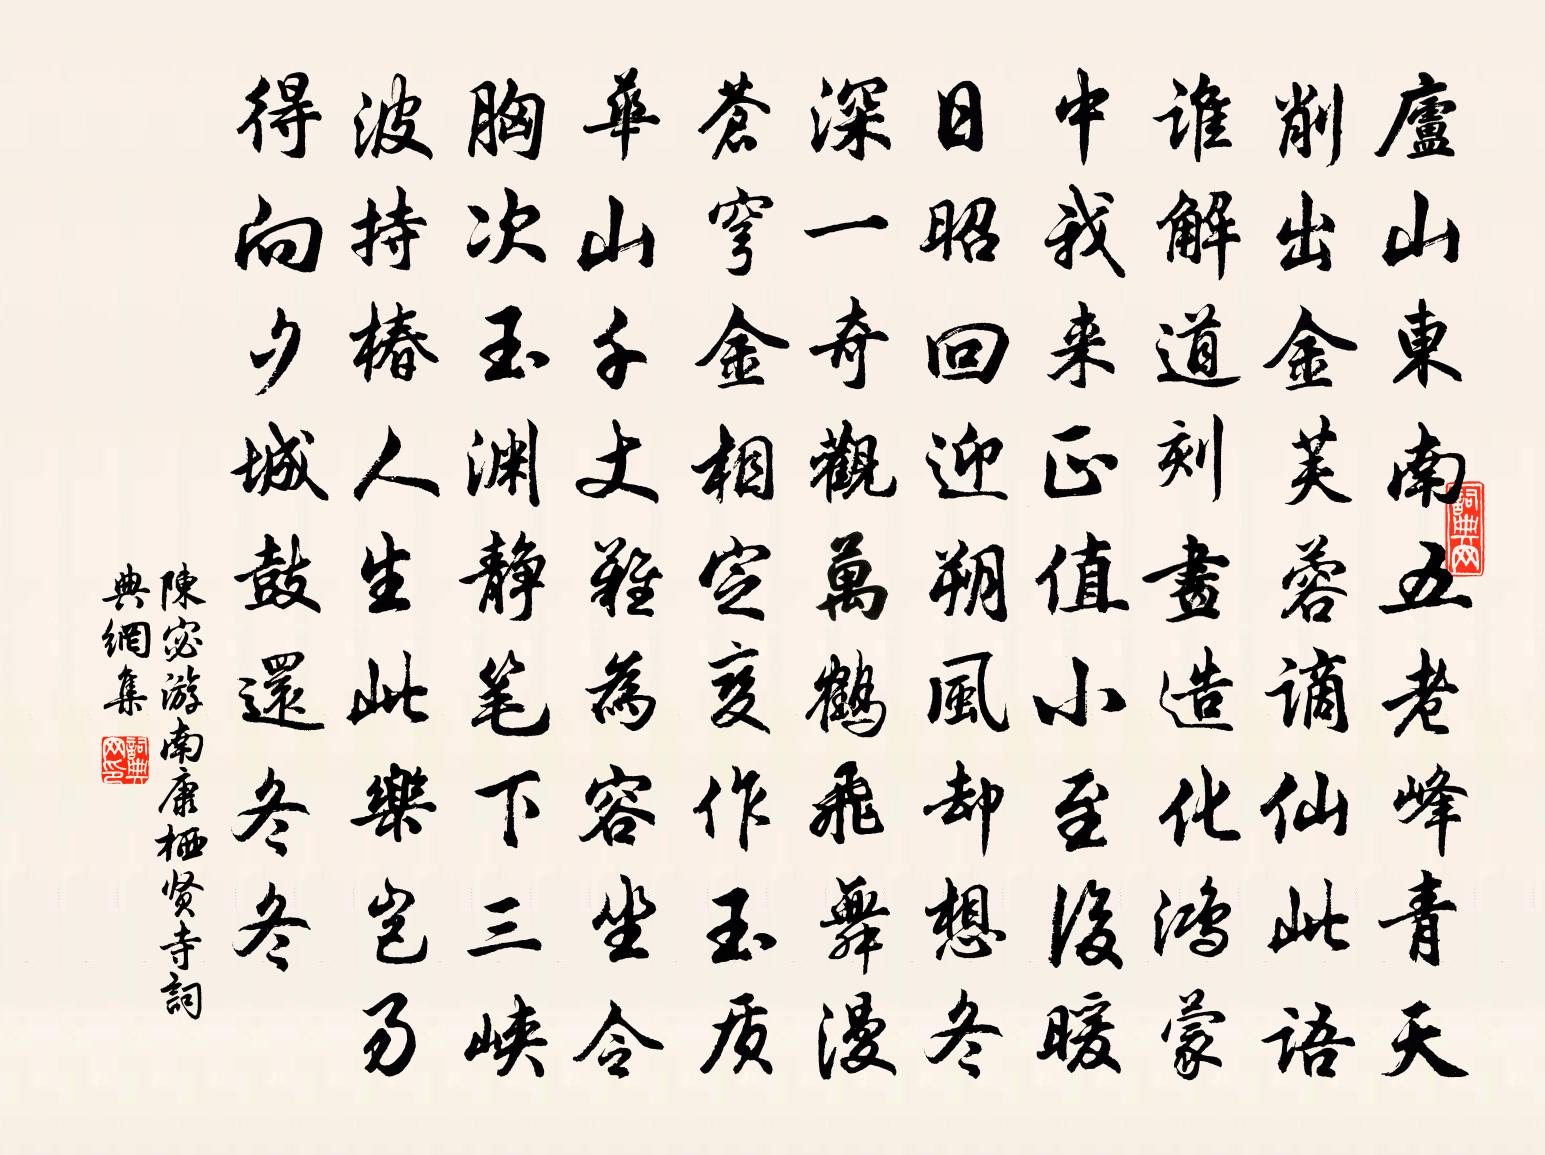 廬山東南五老峰青天
削出金芙蓉謫仙此語
谁解道刻畫造化鴻蒙
中我来正值小至後暖
日昭回迎朔風却想冬
深一奇觀萬鶴飛舞漫
蒼穹金相定变作玉质
華山千丈難為容坐令
胸次玉渊静笔下三峡
波持椿人生此樂岂易
得向夕城鼓還冬冬
陳宓游南康栖贤寺詞
典網集
詞典网
詞典网印